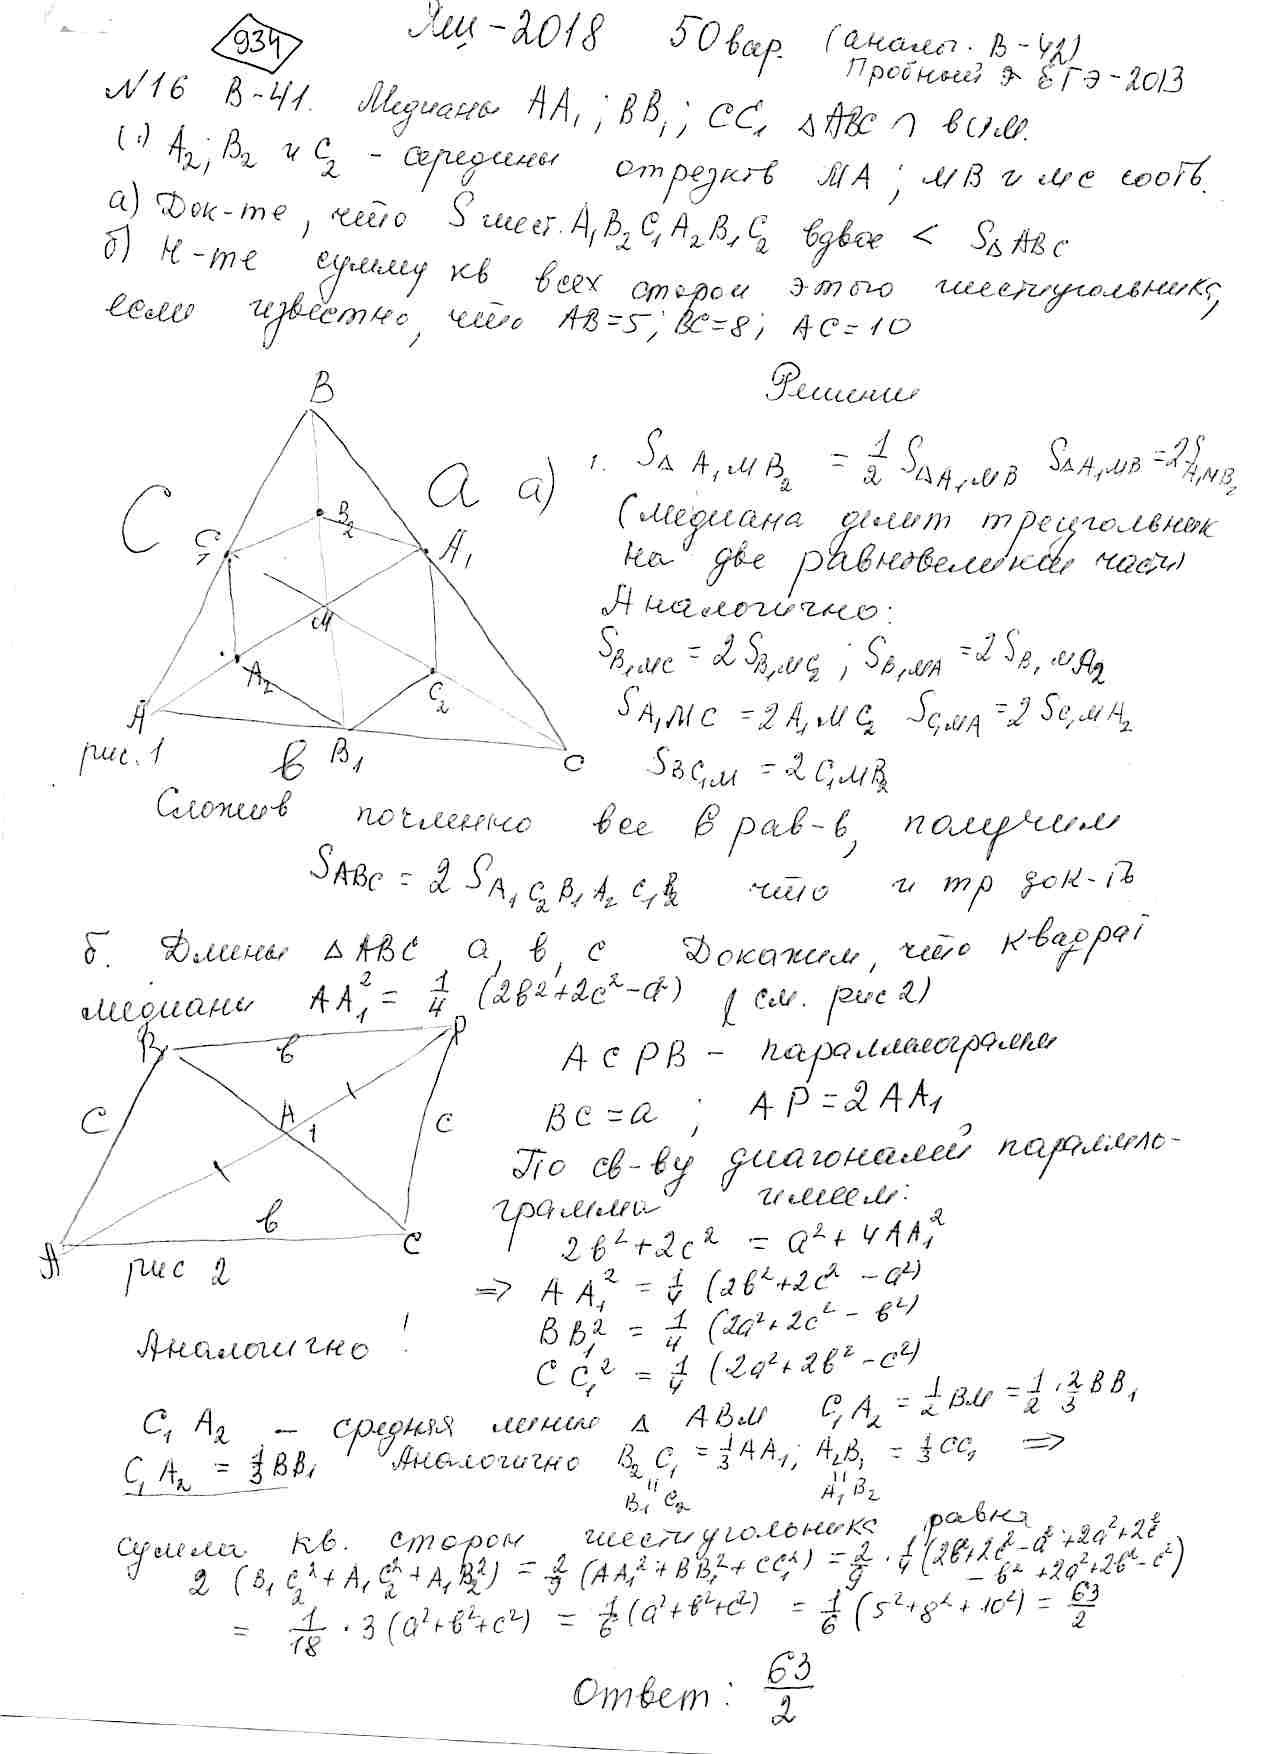 934
Ящ-2018 50 вар. (аналог. В-42)
Пробный ЕГЭ-2013
№16 В-41. Медианы AA₁; BB₁; CC₁ △ABC ∩ в (·) M.
(·) A₂; B₂ и C₂ - середины отрезков MA; MB и MC соотв.
а) Док-те, что S шест. A₁B₂C₁A₂B₁C₂ вдвое < S△ABC
б) Н-те сумму кв всех сторон этого шестиугольника,
если известно, что AB=5; BC=8; AC=10
Решение
B
C
a
C₁
B₂
A₁
M
A₂
C₂
A
B₁
C
в
рис. 1
а) 1. S△A₁MB₂ = 1/2 S△A₁MB S△A₁MB = 2S A₁MB₂
(медиана делит треугольник
на две равновеликие части)
Аналогично:
S B₁MC = 2S B₁MC₂; S B₁MA = 2S B₁MA₂
S A₁MC = 2 A₁MC₂ S C₁MA = 2S C₁MA₂
S BC₁M = 2 C₁MB₂
Сложив почленно все 6 рав-в, получим
S ABC = 2 S A₁C₂B₁A₂C₁B₂ что и тр док-ть
б. Длины △ABC a, в, c Докажем, что квадрат
медианы AA₁² = 1/4 (2в²+2c²-a²) (см. рис 2)
B
в
P
C
A₁
c
A
в
C
рис 2
ACPB - параллелограмм
BC = a; AP = 2AA₁
По св-ву диагоналей параллело-
грамма имеем:
2в²+2c² = a²+4AA₁²
⇒ AA₁² = 1/4 (2в²+2c²-a²)
Аналогично: BB₁² = 1/4 (2a²+2c²-в²)
CC₁² = 1/4 (2a²+2в²-c²)
C₁A₂ - средняя линия △ ABM C₁A₂ = 1/2 BM = 1/2 · 2/3 BB₁
C₁A₂ = 1/3 BB₁ Аналогично B₂C₁ = 1/3 AA₁; A₂B₁ = 1/3 CC₁ ⇒
B₁C₂ A₁B₂
сумма кв. сторон шестиугольника равна
2 (B₁C₂² + A₁C₂² + A₁B₂²) = 2/9 (AA₁²+BB₁²+CC₁²) = 2/9 · 1/4 (2в²+2c²-a²+2a²+2c²
-в²+2a²+2в²-c²)
= 1/18 · 3 (a²+в²+c²) = 1/6 (a²+в²+c²) = 1/6 (5²+8²+10²) = 63/2
Ответ: 63/2